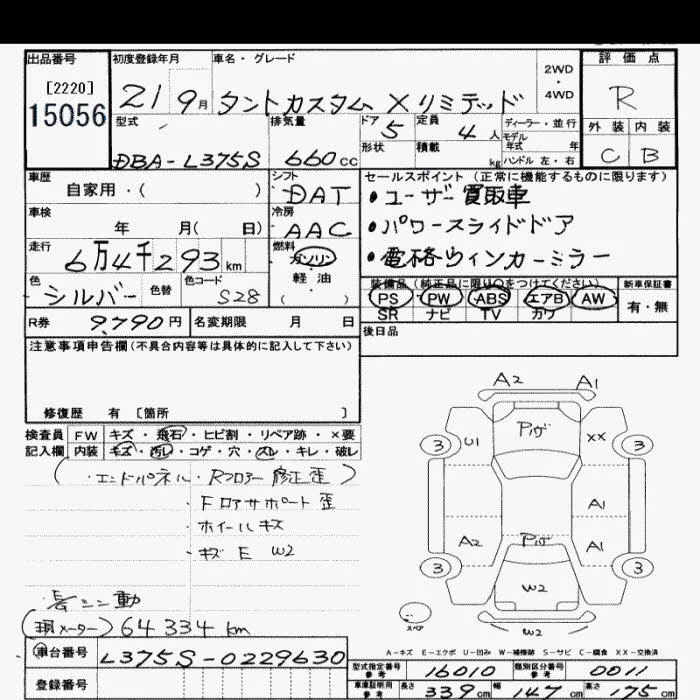 出品番号
[2220]
15056
初度登録年月
21 9月
車名・グレード
タントカスタム Xリミテッド
2WD
・
4WD
評価点
R
外装 内装
C B
型式
DBA-L375S
排気量
660cc
ドア
5
定員
4人
形状
積載
kg
ディーラー・並行
モデル
年式 年
ハンドル 左・右
車歴
自家用・( )
シフト
DAT
セールスポイント (正常に機能するものに限ります)
・ユーザー買取車
・パワースライドドア
・電格ウィンカーミラー
車検
年 月( 日)
冷房
AAC
走行
6万4千293km
燃料
ガソリン
・
軽油
( )
色
シルバー
色替
色コード
S28
装備品 (純正品に限り○をつけてください)
PS PW ABS エアB AW
SR ナビ TV カワ
新車保証書
有・無
R券
9,790円
名変期限 月 日
後日品
注意事項申告欄(不具合内容等は具体的に記入して下さい)
修復歴 有 [箇所 ]
検査員 FW キズ・飛石・ヒビ割・リペア跡・×要
記入欄 内装 キズ・汚レ・コゲ・穴・スレ・キレ・破レ
(・エンドパネル・Rフロアー修正歪)
・Fロアサポート歪
・ホイールキズ
・キズE W2
・長シン動
(現メーター) 64334km
車台番号 L375S-0229630
登録番号
A2 A1
3 U1 Pいげ XX 3
A1
A2 Pいげ A1
3 W2 3
スペア
W2
A-キズ E-エクボ U-凹み W-補修跡 S-サビ C-腐食 XX-交換済
型式指定番号
参考
16010
類別区分番号
参考
0011
車庫証明用
参考
長さ 339cm 幅 147cm 高さ 175cm